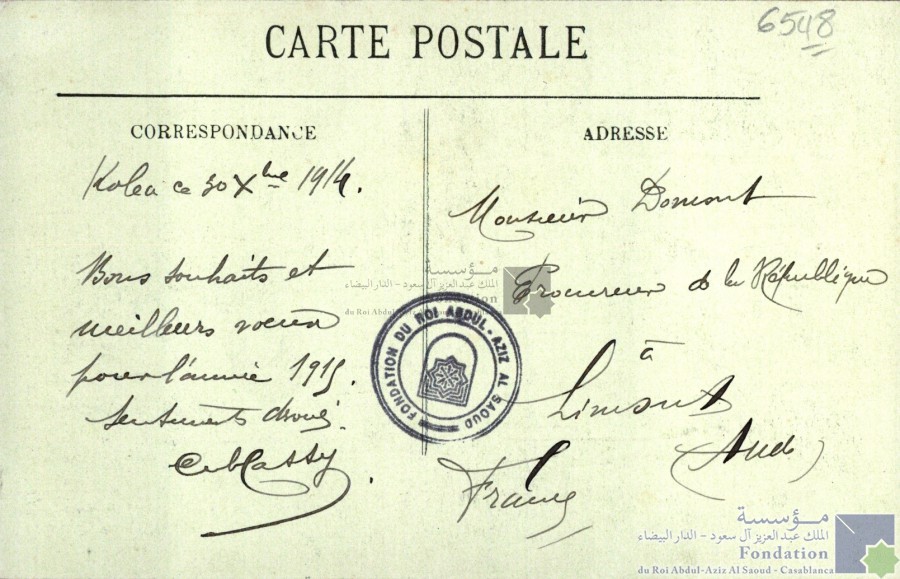 6548
CARTE POSTALE
CORRESPONDANCE
Kolea ce 30 Xbre 1914.
Bons souhaits et
meilleurs voeux
pour l'année 1915.
Sentiments dévoués
ADRESSE
Monsieur Domont
Procureur de la République
à
Limoux
(Aude)
France
مؤسسة
الملك عبد العزيز آل سعود - الدار البيضاء
Fondation
du Roi Abdul-Aziz
FONDATION DU ROI ABDUL-AZIZ AL SAOUD
مؤسسة
الملك عبد العزيز آل سعود - الدار البيضاء
Fondation
du Roi Abdul-Aziz Al Saoud - Casablanca